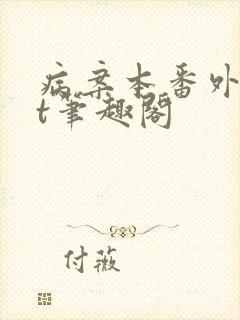 病案本番外
t笔趣阁
付薇